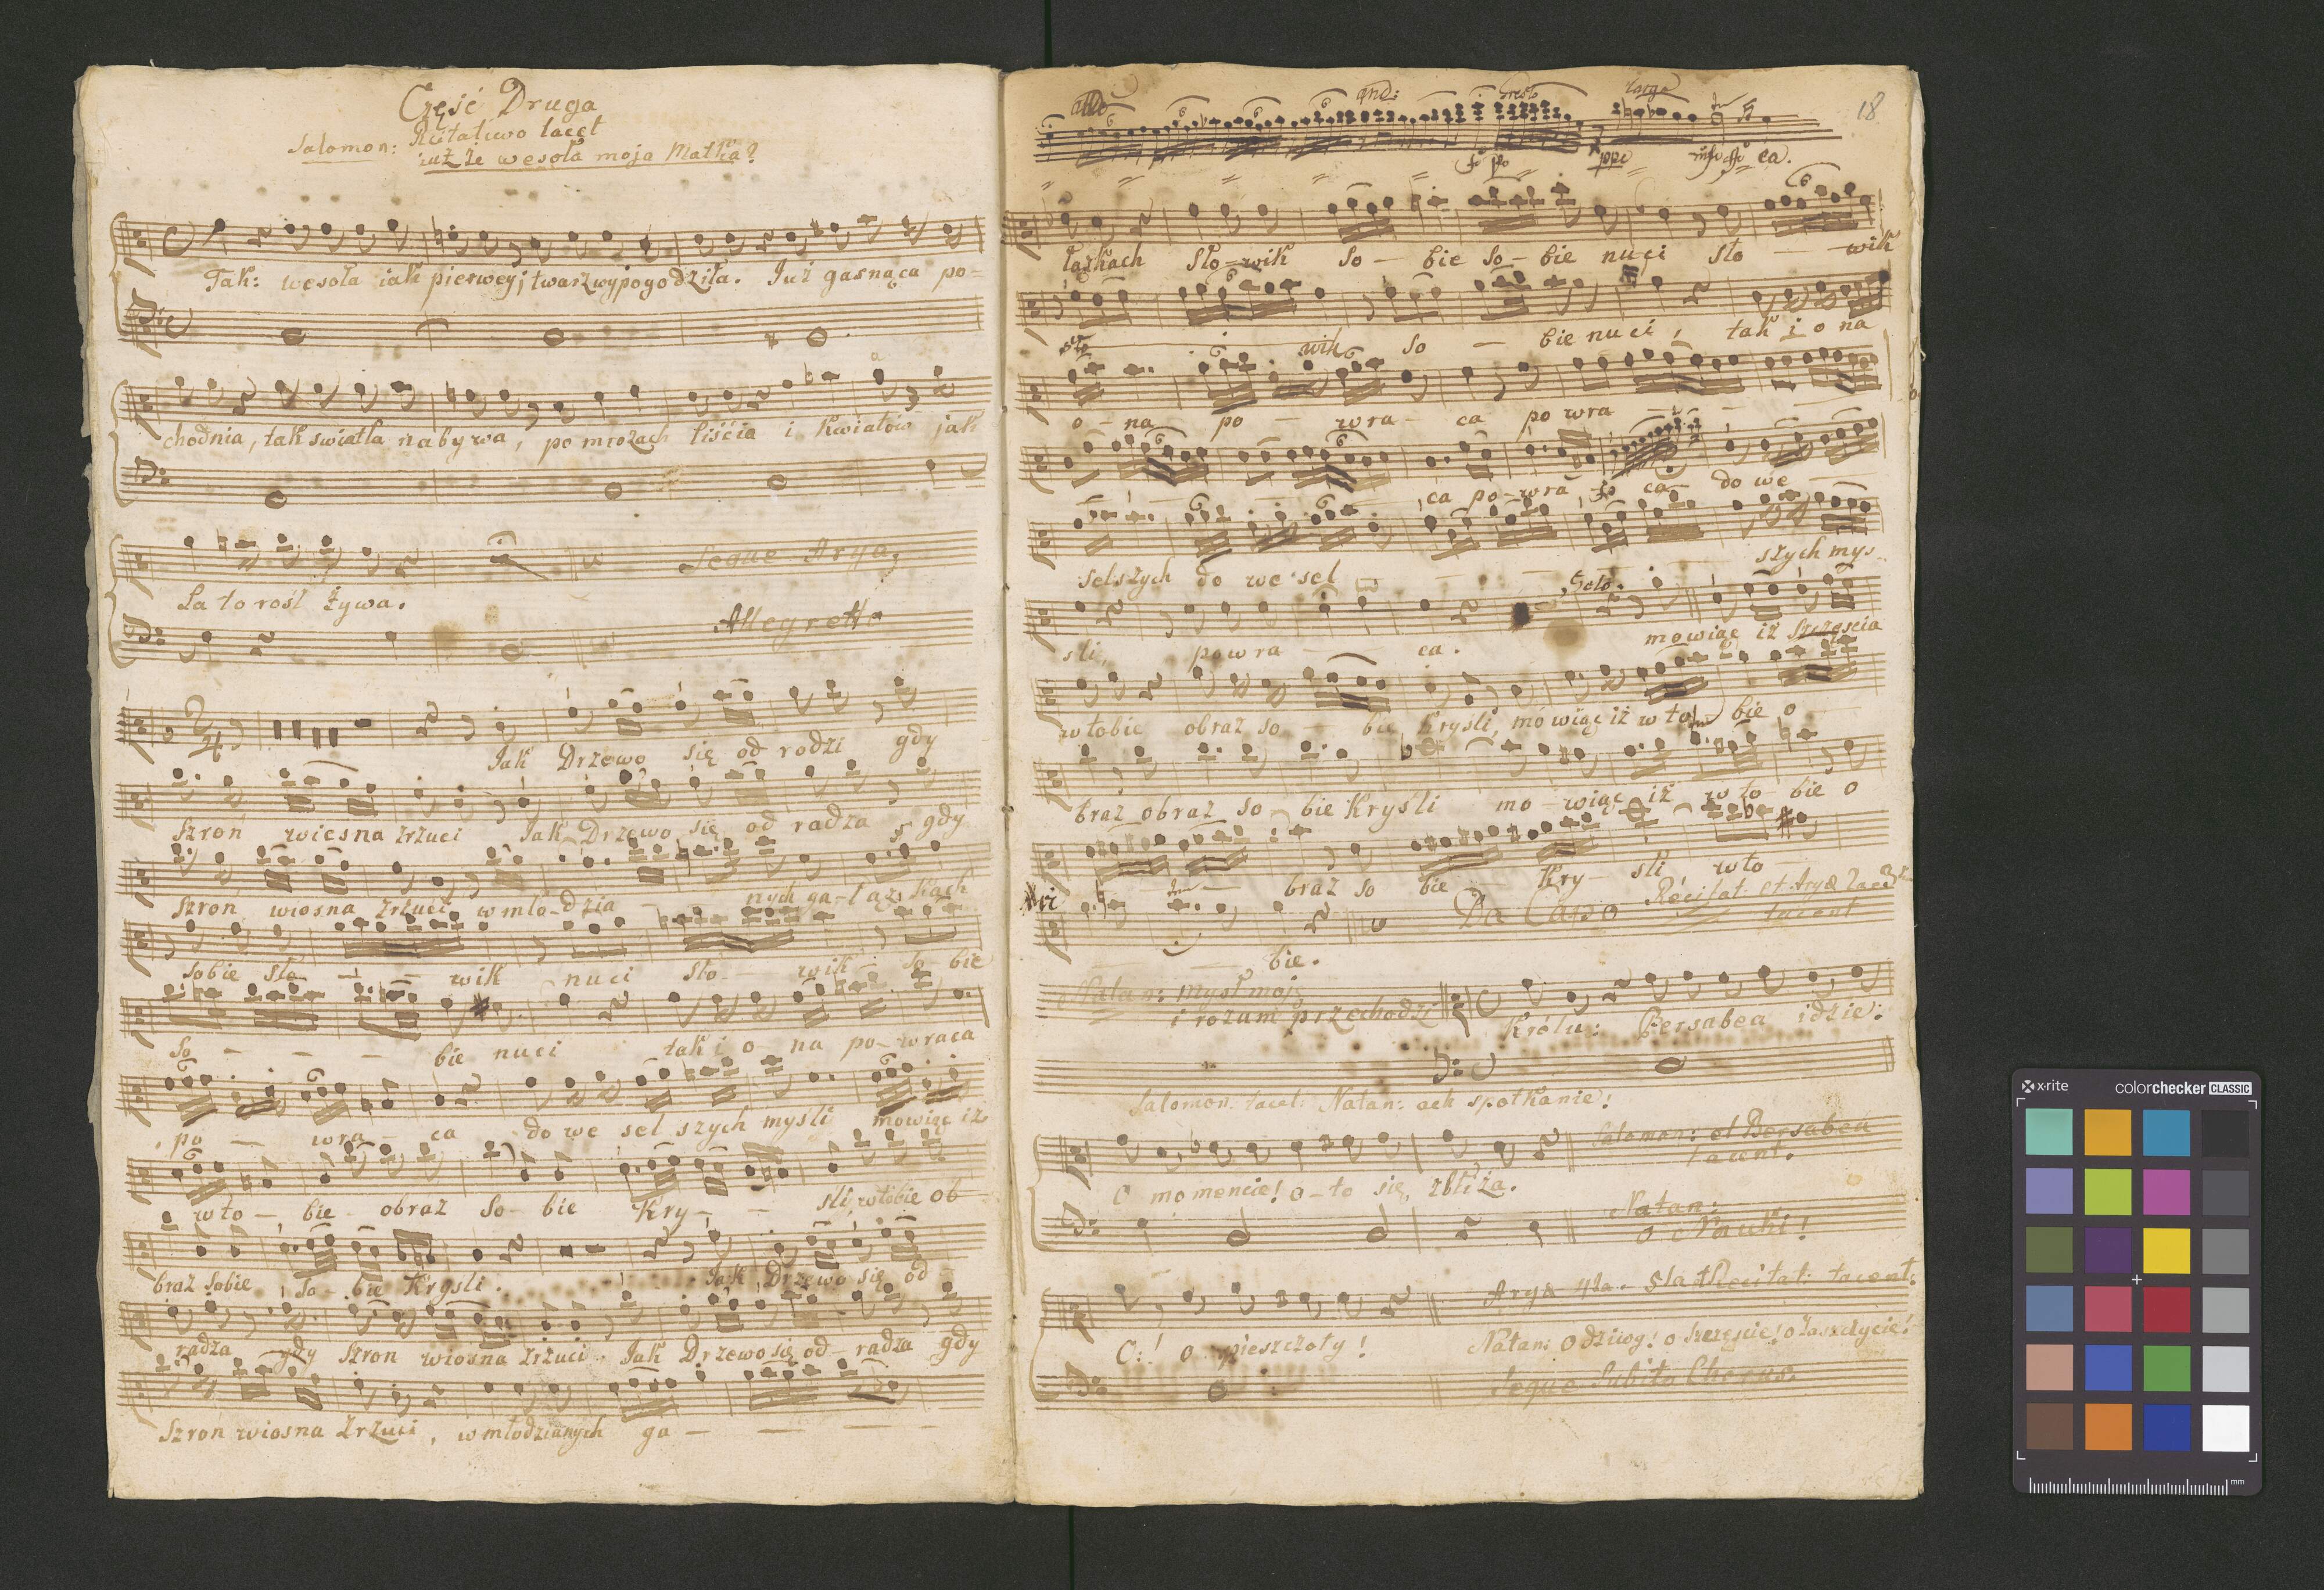 Część Druga
Recitatiwo tacet
Salomon: iuż że wesoła moja Matka?
Tak: wesoła iak pierwey, twarz wypogodziła. Już gasnąca po-
chodnia, tak swiatła nabywa, po mrozach liścia i kwiatów jak
La to rośl żywa.
Segue Arya,
Allegretto
Jak Drzewo się od rodzi gdy
Szron wiesna zrzuci Jak Drzewo się od radza gdy
Szron wiosna zrzuci w mło-dzia - nych ga-łąz-kach
sobie sło - wik nuci sło - wik so-bie
so - - - bie nuci tak i o-na po-wraca
po - wra - ca do we sel szych mysli mowiąc iż
w to - bie - obraz So-bie Kry - - sli, w tobie ob-
braz sobie, So-bie Krysli. Jak Drzewo się od-
radza gdy Szron wiosna zrzuci. Jak Drzewo się od-radza gdy
Szron wiosna zrzuci, w młodzianych ga - - - -
18
allo and: presto largo
fo po ppo ca.
łązkach Sło-wik So - bie So-bie nuci sło - - wik
wik So - bie nuci, tak i o na
o-na po - wra - ca po wra - - -
ca po-wra, ca do we -
selszych do we sel - - - szych mys
Solo.
sli, powra - ca. mowiąc iż Szczęscia
w tobie obraz so - bie Krysli, mówiąc iż w to bie o
braz obraz So-bie Krysli mo-wiąc iż w to-bie o
- - - braz So bie - Kry - sli w to -
Da Capo
Recitat: et Arya
tacent
bie.
Natan: mysł moję
i rozum przechodzi
Królu: Bersabea idzie:
Salomon tacet: Natan: ach spotkanie!
Salomon: et Bersabea
tacent.
O momencie! o-to się zbliża.
Natan:
o Nauki!
Arya 4ta. 5ta et Recitat: tacent.
O! o pieszczoty!
Natan: O dziwy! o szczęscie! o zaszczycie!
Segue Subito Chorus.